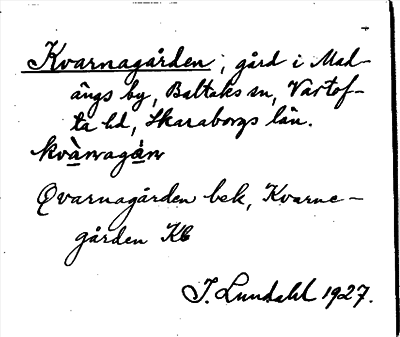 Kvarnagården; gård i Mad-
ängs by, Baltaks sn, Vartof-
ta hd, Skaraborgs län.
kvànagán
Qvarnagården bek, Kvarne-
gården Kb
I. Lundahl 1927.